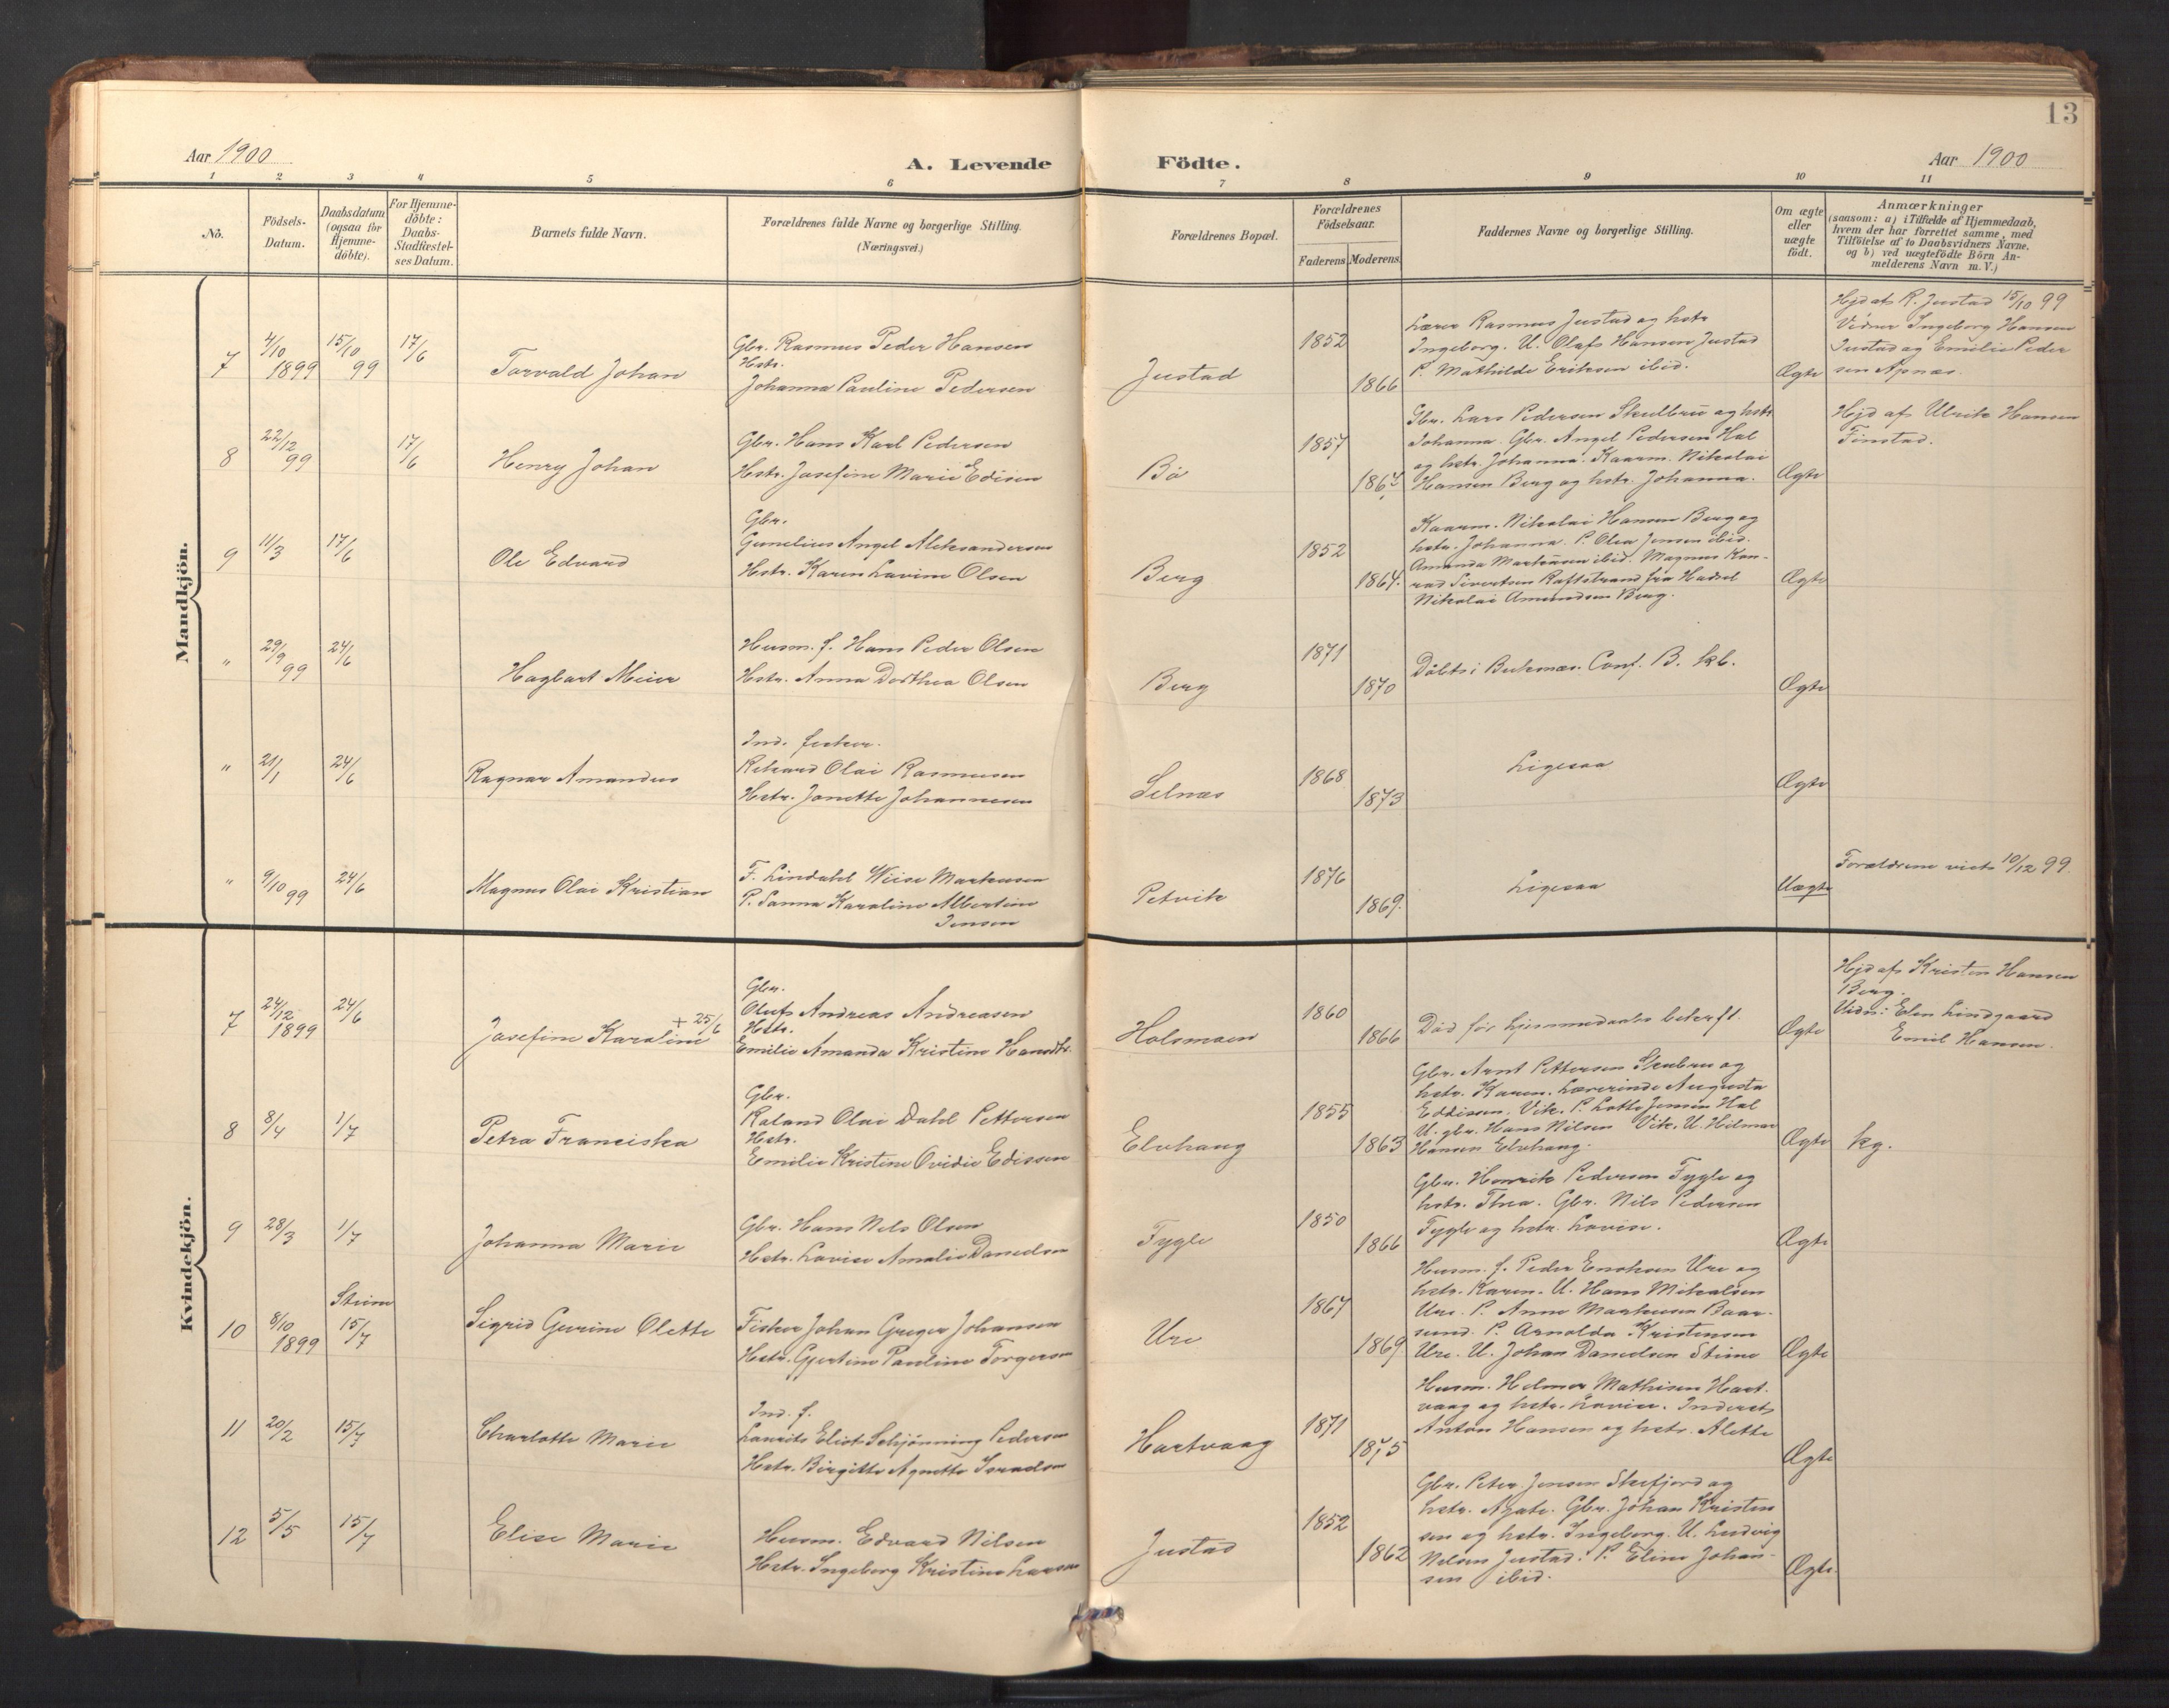 13
Aar 1900
A. Levende Födte.
Aar 1900
1 2 3 4 5 6 7 8 9 10 11
No.
Födsels-
Datum.
Daabsdatum
(ogsaa for
Hjemme-
döbte).
For Hjemme-
döbte:
Daabs-
Stadfæstel-
ses Datum.
Barnets fulde Navn.
Forældrenes fulde Navne og borgerlige Stilling.
(Næringsvei.)
Forældrenes Bopæl.
Forældrenes
Födselsaar.
Faderens Moderens
Faddernes Navne og borgerlige Stilling.
Om ægte
eller
uægte
födt.
Anmærkninger
(saasom: a) i Tilfælde af Hjemmedaab,
hvem der har forrettet samme, med
Tilföielse af to Daabsvidners Navne.
og b) ved uægtefödte Börn An-
melderens Navn m. V.)
Mandkjön.
7
4/10
1899
15/10
99
17/6
Torvald Johan
Gbr. Rasmus Peder Hansen
Hstr.
Johanna Pauline Pedersen
Justad
1852
1866
Lærer Rasmus Justad og hstr
Ingeborg. U. Olaf Hansen Justad
P. Mathilde Eriksen ibid.
Ægte
Hjd af R. Justad 15/10 99
Vidner Ingeborg Hansen
Justad og Emilie Peder
sen Apnæs.
8
22/12
99
17/6
Henry Johan
Gbr. Hans Karl Pedersen
Hstr. Josefine Marie Edisen
Bö
1857
Gbr. Lars Pedersen Skulbru og hstr
Johanna. Gbr. Angel Pedersen Hal
og hstr. Johanna. Kaarm. Nikolai
Hansen Berg og hstr. Johanna.
Ægte
Hjd af Ulrik Hansen
Finstad.
9
11/3
17/6
Ole Edvard
Gbr.
Gunelius Angel Aleksandersen
Hstr. Karen Lavine Olsen
Berg
1852
1864.
Kaarm. Nikolai Hansen Berg og
hstr. Johanna. P. Olea Jensen ibid.
Amanda Martinsen ibid. Magnus Kon-
rad Sivertsen Raftstrand fra Hadsel
Nikolai Amundsen Berg.
Ægte
"
29/9
99
24/6
Hagbart Meier
Husm. f. Hans Peder Olsen
Hstr. Anna Dorthea Olsen
Berg
1871
1870
Döbt i Buksnæs. Conf. B. kb.
Ægte
"
21/1
24/6
Ragnar Amandus
Ind. fisker.
Rikard Olai Rasmusen
Hstr. Janette Johannesen
Selnæs
1868
1873
Ligesaa
Ægte
"
9/10 99
24/6
Magnus Olai Kristian
F. Lindahl Wiise Markusen
P. Sanna Karoline Albertine
Jensen
Petvik
1876
1869.
Ligesaa
Uægte
Forældrene viet 10/12 99.
Kvindekjön.
7
24/12
1899
24/6
+ 25/6
Josefine Karoline
Gbr.
Oluf Andreas Andreasen
Hstr.
Emilie Amanda Kristine Hansdtr.
Holsmoen
1860
1866
Död för hjemmedaabs bekræft.
Ægte
Hjd af Kristen Hansen
Berg.
Vidn: Elen Lindgaard
Emil Hansen.
8
8/4
1/7
Petra Franciska
Gbr.
Roland Olai Dahl Pettersen
Hstr.
Emilie Kristine Ovidie Edissen
Elvhaug
1855
1863
Gbr. Arnt Pettersen Skulbru og
hstr. Karen. Lærerinde Augusta
Eddisen, Vik. P. Lotte Jensen Hal
U. gbr. Hans Nilsen Vik. U. Hilmar
Hansen Elvhaug.
Ægte
kg.
9
28/3
1/7
Johanna Marie
Gbr. Hans Nels Olsen
Hstr. Lovise Amalie Danielsen
Fygle
1850
1866
Gbr. Henrik Pedersen Fygle og
hstr. Thea. Gbr. Nils Pedersen
Fygle og hstr. Lovise.
Ægte
10
8/10
1899
Stene
15/7
Sigrid Gurine Olette
Fisker Johan Greger Johansen
Hstr. Gjertine Pauline Torgersen
Ure
1867
1869.
Husm. f. Peder Enoksen Ure og
hstr. Karen. U. Hans Mikalsen
Ure. P. Anne Markusen Baar-
sund. P. Arnolda Kristensen
Ure. U. Johan Danielsen Stene
Ægte
11
20/2
15/7
Charlotte Marie
Ind. f.
Laurits Eliot Schjönning Pedersen
Hstr. Birgitte Agnette Israelsen
Hartvaag
1871
1875
Husm. Helmer Mathisen Hart-
vaag og hstr. Lovise. Inderst
Anton Hansen og hstr. Alette
Ægte
12
5/5
15/7
Elise Marie
Husm. Edvard Nilsen
Hstr. Ingeborg Kristine Larsen
Justad
1852
1862
Gbr. Peter Jensen Skifjord og
hstr. Agate. Gbr. Johan Kristen
sen og hstr. Ingeborg. U. Ludvig
Nilsen Justad. P. Eline Johan-
sen ibid.
Ægte.